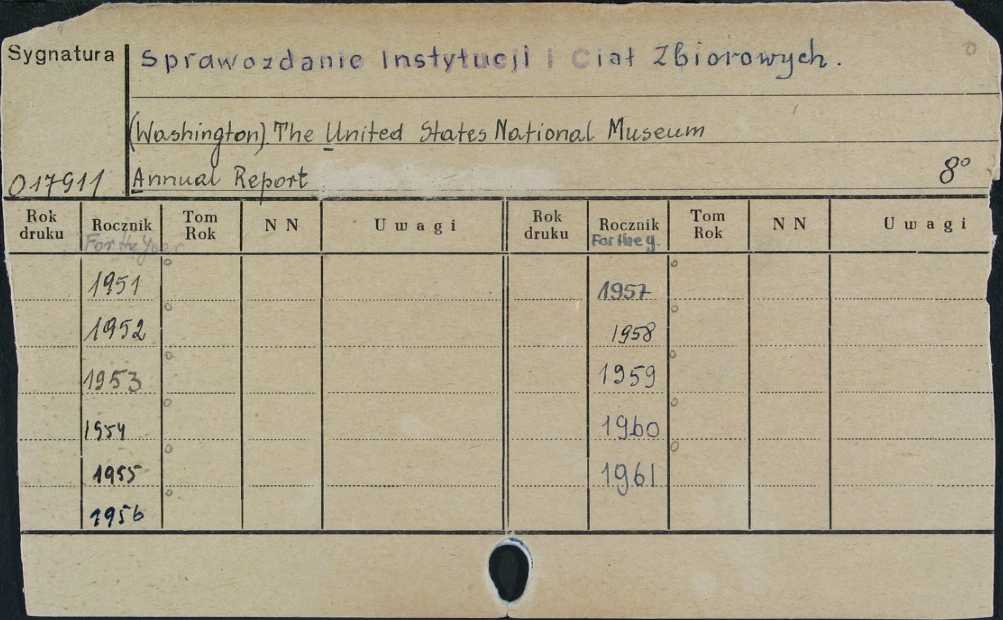 Sygnatura
Sprawozdanie Instytucji i Ciał Zbiorowych.
(Washington). The United States National Museum
017911 Annual Report 8°
Rok druku Rocznik Tom Rok NN Uwagi Rok druku Rocznik Tom Rok NN Uwagi
For the Year For the y.
1951 1957
1952 1958
1953 1959
1954 1960
1955 1961
1956